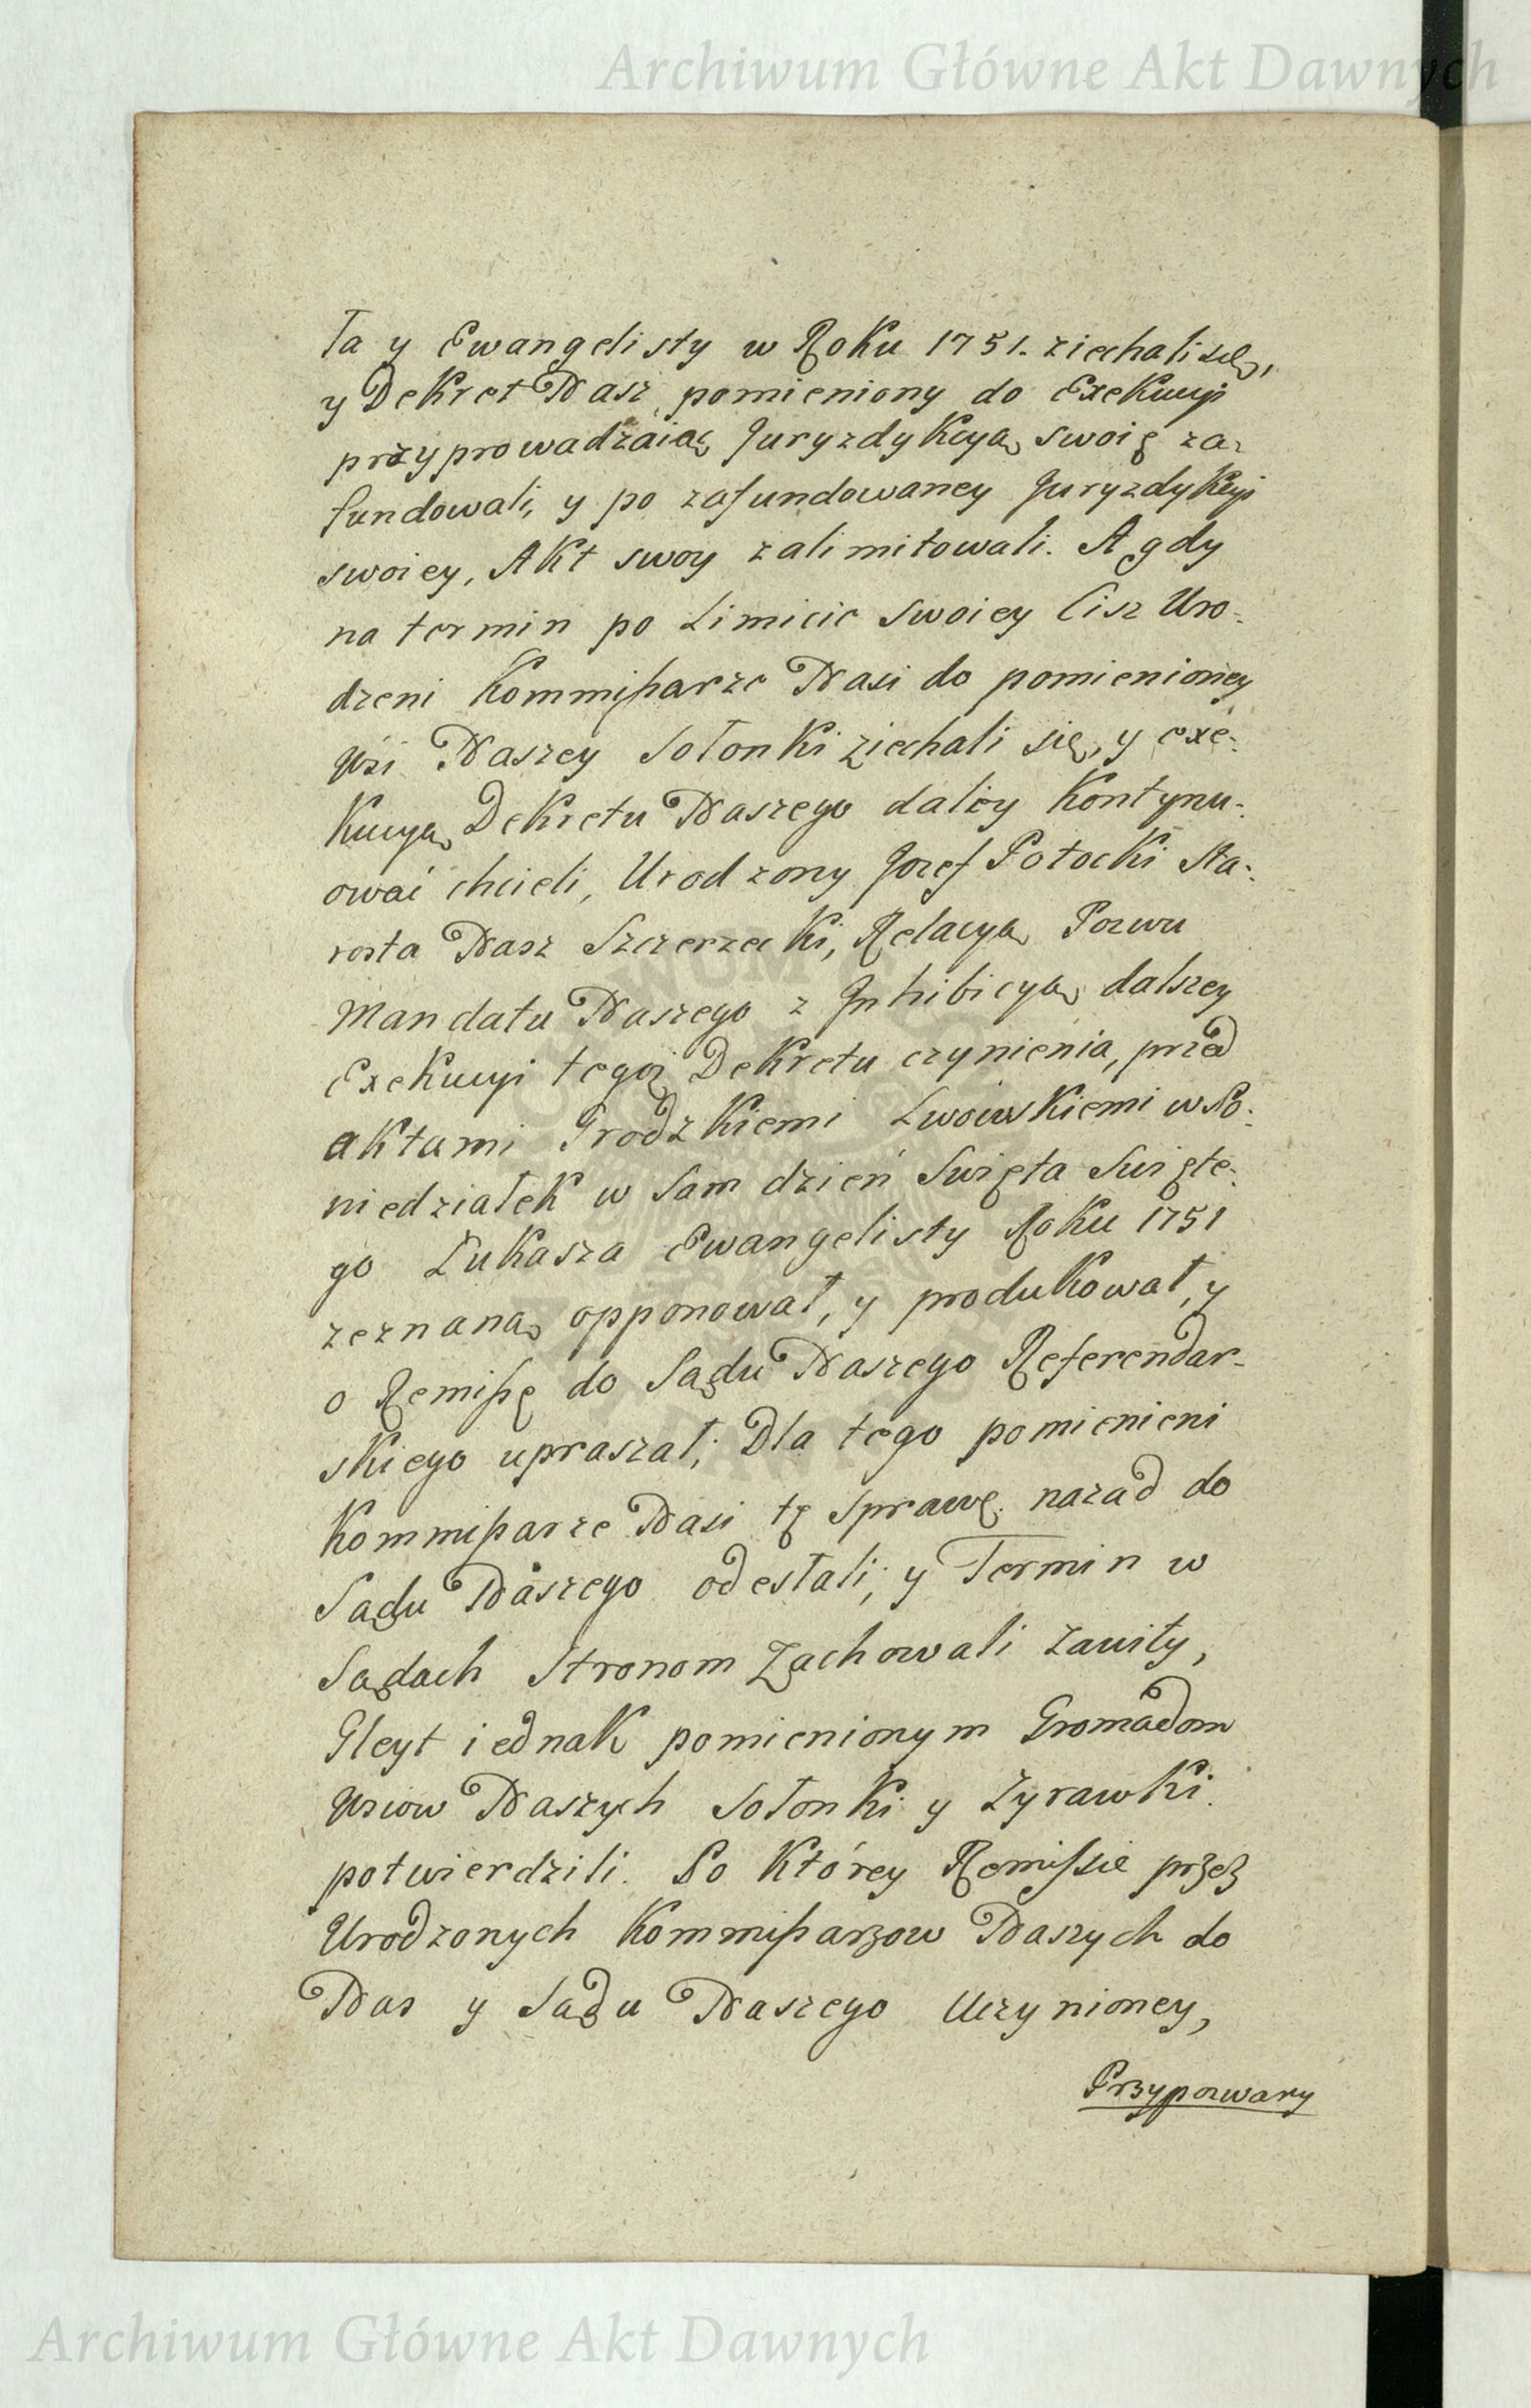 Archiwum Główne Akt Dawnych
ła y Ewangelisty w Roku 1751. ziechali się,
y Dekret Nasz pomieniony do Exekucyi
przyprowadzaiąc Juryzdykcyą swoię za-
fundowali, y po zafundowaney Juryzdykcyi
swoiey, Akt swoy zalimitowali. A gdy
na termin po Limicie swoiey Ciż Uro-
dzeni Kommißarze Nasi do pomienioney
Wsi Naszey Sołonki ziechali się, y exe-
kucyą Dekretu Naszego daley kontynu-
ować chcieli, Urodzony Jozef Potocki Sta-
rosta Nasz Szczerzecki, Relacyą Pozwu
Mandatu Naszego z Inhibicyą dalszey
Exekucyi tegoż Dekretu czynienia, przed
aktami Grodzkiemi Lwowskiemi w Po-
niedziałek w sam dzień Swięta Swięte-
go Łukasza Ewangelisty Roku 1751
zeznaną opponował, y produkował, y
o Remißę do Sądu Naszego Referendar-
skiego upraszał; Dla tego pomienieni
Kommißarze Nasi tę sprawę nazad do
Sądu Naszego odesłali; y Termin w
Sądach Stronom zachowali zawity,
Gleyt iednak pomienionym Gromadom
Wsiow Naszych Sołonki y Żyrawki
potwierdzili. Po ktorey Remissie przez
Urodzonych Kommißarzow Naszych do
Nas y Sądu Naszego uczynioney,
Przypozwany
Archiwum Główne Akt Dawnych